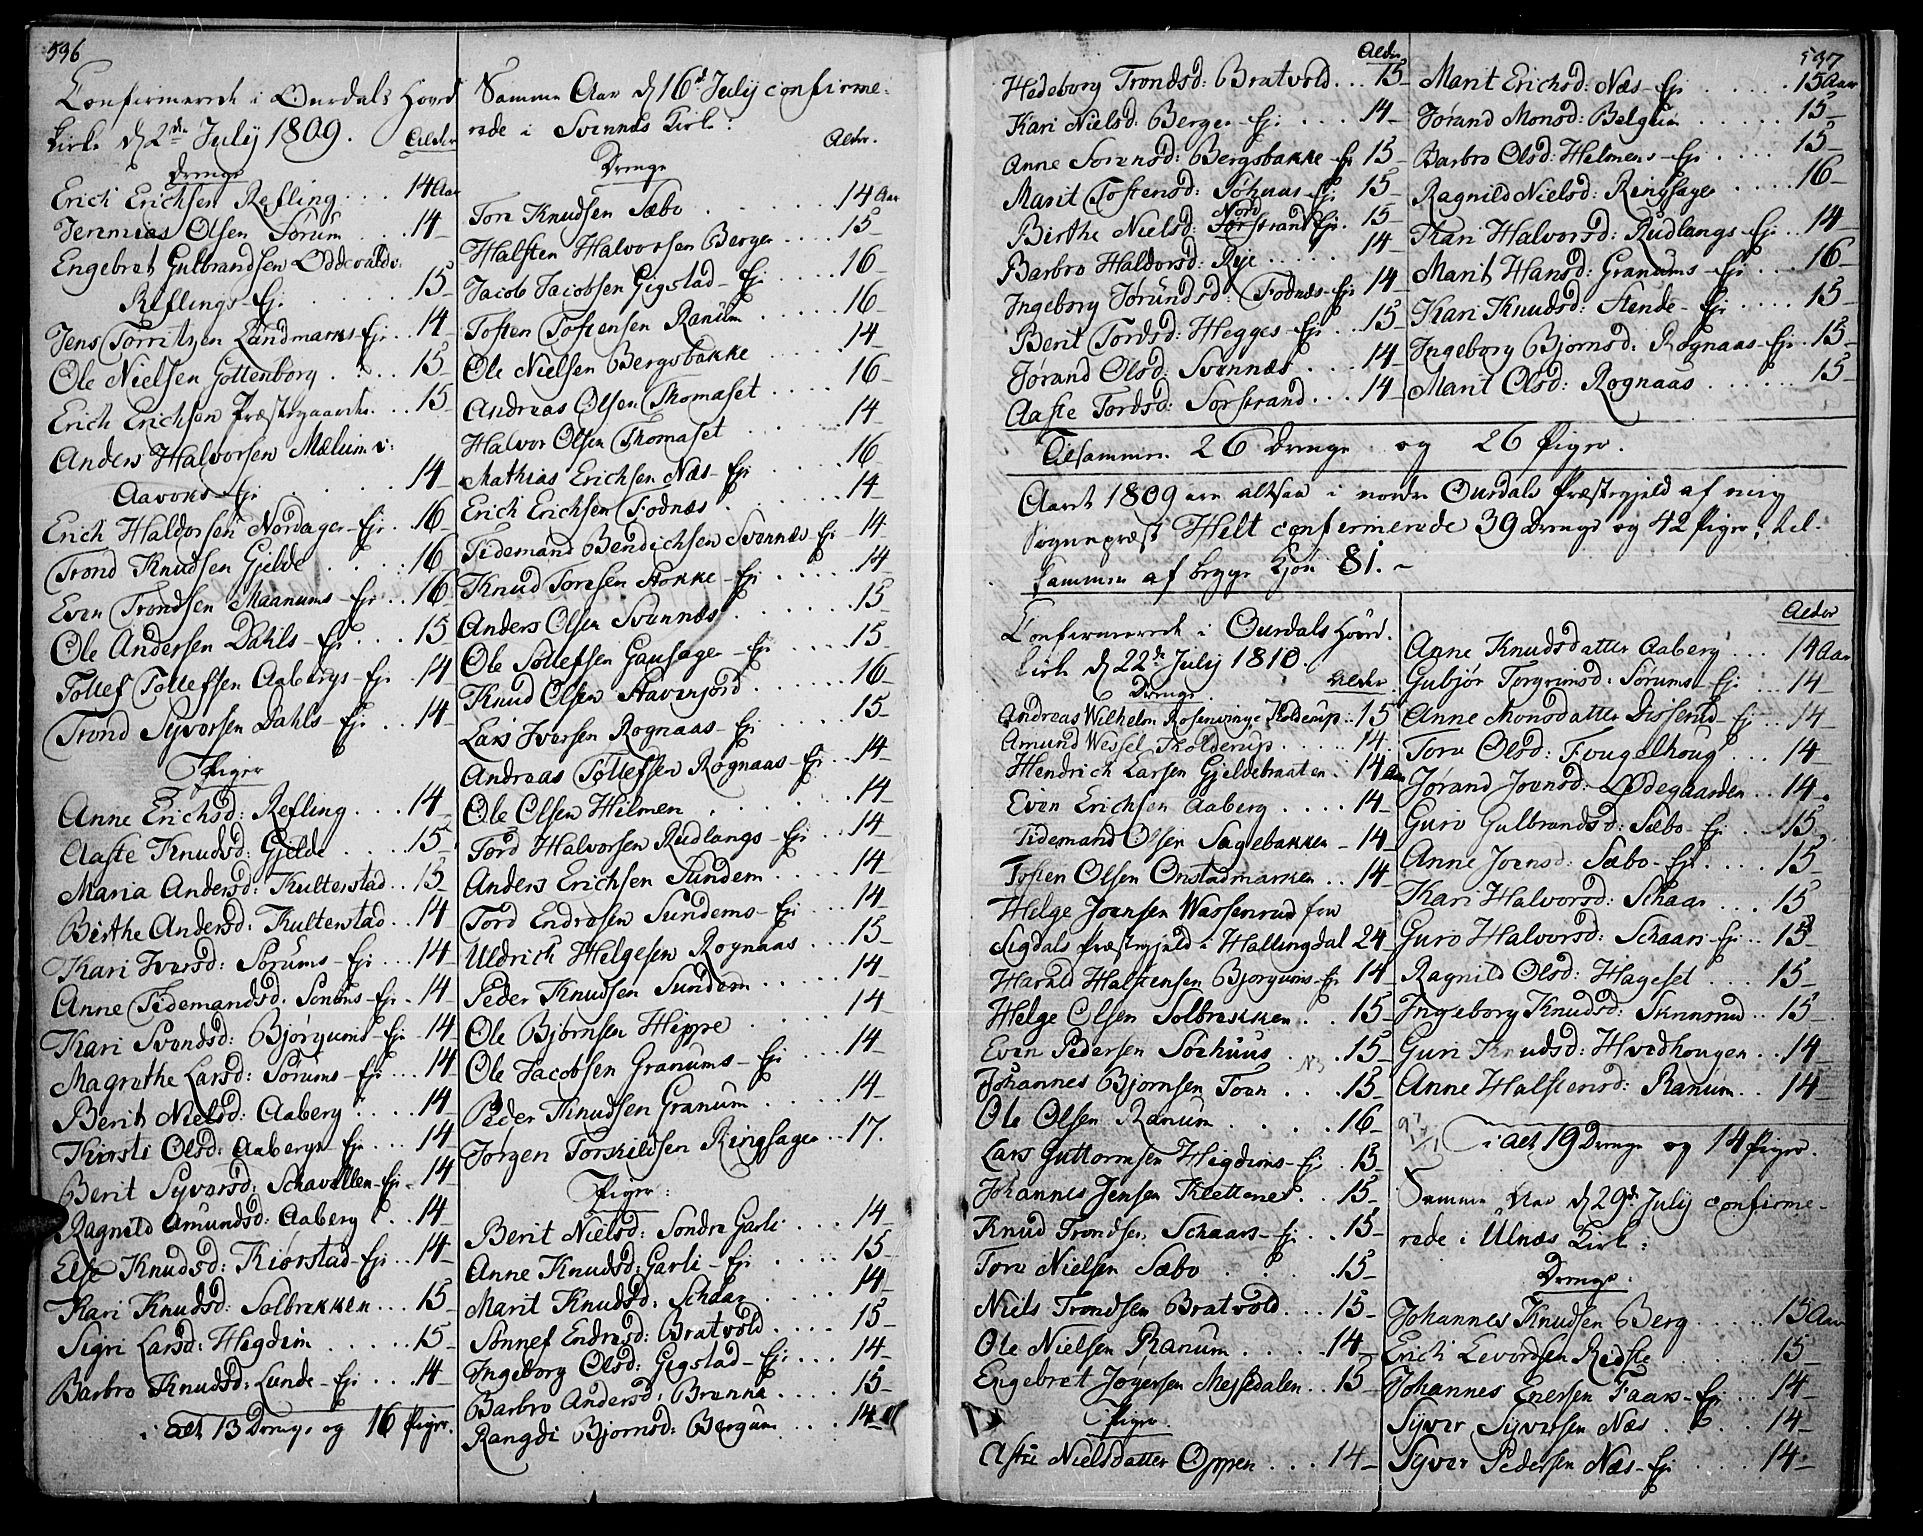 596
Confirmerede i Ourdals Hoved
Kirke d 2de July 1809. Alder
Drenge
Erich Erichsen Refling . . . 14 Aar
Jeremias Olsen Sorum . . . 14
Engebret Gulbrandsen Oddevolds:
Reflings-Ej. . . . . 15
Jens Torritzen Landmarks-Ej . . 14
Ole Nielsen Gottenborg . . . 15
Erich Erichsen Præstegaards. . . 15
Anders Halvorsen Mælum v:
Aavoks-Ej . . . 14
Erich Haldorsen Nordager-Ej . 16
Trond Knudsen Gjelde . . . . 16
Even Trondsen Maanums-Ej . . 16
Ole Andersen Dahls-Ej . . . 15
Tollef Tollefsen Aabergs-Ej . 14
Trond Syversen Dahls-Ej . . 14
Piger
Anne Erichsd: Refling . . . 14
Aaste Knudsd: Gjelde . . . 15
Maria Andersd: Kultenstad . . 15
Birthe Andersd: Kultenstad . . 14
Kari Iversd: Sorums-Ej . . . 14
Anne Tidemandsd: Sorums-Ej . 14
Kari Svendsd: Bjørgums-Ej . 14
Magrethe Larsd: Sorums-Ej . . 14
Berit Nielsd: Aaberg . . . . 14
Kirsti Olsd: Aabergs Ej . . . 14
Berit Syversd: Schavellen-Ej . 14
Ragnild Amundsd: Aaberg . . 14
Else Knudsd: Kiørstad-Ej . . 14
Kari Knudsd: Solbrekken . . . 15
Sigri Larsd: Hegdim . . . . 15
Barbro Knudsd: Lunde-Ej . . . 14
i alt 13 Drenge og 16 Piger.
Samme Aar d 16de July confirme-
rede i Svennæs Kirke:
Alder.
Drenge
Tore Knudsen Sæbo . . . . . 14 Aar
Halsten Halvorsen Berger . . . . 15
Jacob Jacobsen Gigstad-Ej . . . . 16
Tosten Tostensen Ranum . . . . . 16
Ole Nielsen Bergsbakke . . . . 14
Andreas Olsen Thomaset . . . . 16
Halvor Olsen Thomaset . . . . . 14
Mathias Erichsen Næs-Ej . . . . 16
Erich Erichsen Fodnæs . . . . 14
Tidemand Bendichsen Svennes Ej - 14
Knud Toresen Stokke-Ej . . . . 14
Anders Olsen Svennæs . . . . . 15
Ole Tollefsen Gausager-Ej . . . . 15
Knud Olsen Stavenjord . . . . . 16
Lars Iversen Rognaas-Ej . . . . 15
Andreas Tollefsen Rognaas-Ej . . 14
Ole Olsen Hilmen . . . . . . 14
Tord Halvorsen Rudlangs-Ej . . 14
Anders Erichsen Sundem . . . . 14
Tord Endresen Sundems-Ej . . . 14
Uldrich Helgesen Rognaas . . . 15
Peder Knudsen Sundem . . . . . 14
Ole Bjørnsen Hippe . . . . . 14
Ole Jacobsen Granums-Ej . . . 14
Peder Knudsen Granum . . . . . 14
Jørgen Torskildsen Ringsager . . . 17.
Piger:
Berit Nielsd: Søndre Garli . . . . 14
Anne Knudsd: Garli-Ej . . . . 15
Marit Knudsd: Schaar . . . . . 14
Sønnef Endresd: Bratvold . . . . 15
Ingeborg Olsd: Gigstad-Ej . . . 14
Barbro Andersd: Brenna . . . . 15
Rangdi Bjørnsd: Bergum . . . 14
Alder
Hedeborg Trondsd: Bratvold . . . 15
Kari Nielsd: Berger-Ej . . . 14
Anne Sorensd: Bergsbakke-Ej 15
Marit Tostensd: Søhuus-Ej . 15
Nord
Birthe Nielsd: Sørstrand Ej. . 15
Barbro Haldorsd: Rye . . . . 14
Ingeborg Jørundsd: Fodnæs-Ej 14
Berit Tordsd: Hegges-Ej . . . 15
Jørand Olsd: Svennæs . . . . 14
Aaste Tordsd: Sørstrand . . . 14
597
Marit Erichsd: Næs-Ej . . . . . 15 Aar
Jørand Monsd: Belgum . . . . . 15
Barbro Olsd: Helmens-Ej . . . . 15
Ragnild Nielsd: Ringsager . . . . 16
Kari Halvorsd: Rudlangs-Ej . . 14
Marit Hansd: Granums-Ej . . . . 16
Kari Knudsd: Stende-Ej . . . . 15
Ingeborg Bjornsd: Rognaas-Ej . 15
Marit Olsd: Rognaas . . . . . . 15
Tilsammen 26 Drenge og 26 Piger.
Aaret 1809 ere altsaa i nordre Ourdals Præstegjeld af mig
Sognepræst Helt confirmerede 39 Drenge og 42 Piger, til-
sammen af begge Kjøn 81. -
Confirmerede i Ourdals Hoved.
kirke d 22de July 1810.
Drenge. Alder
Andreas Wilhelm Rosenvinge Kolderup . . 15
Amund Wessel Kolderup . . . . . 14
Hendrich Larsen Gjeldebraaten . 14 Aar
Even Erichsen Aaberg . . . . 14
Tidemand Olsen Sagebakken - 14
Tosten Olsen Onstadmarken . . 14
Helge Joensen Wassenrud fra
Sigdals Præstegjeld i Hallingdal 24
Harald Halstensen Bjorgums-Ej 14
Helge Olsen Solbrekken . . 15
Even Pedersen Søehuus . . . 15
Johannes Bjornsen Toen . . . 15
Ole Olsen Ranum . . . . . 16
Lars Guttormsen Higdims-Ej . 15
Johannes Jensen Klettenes . . 15
Knud Trondsen Schaars-Ej . . 15
Tore Nielsen Sæbo . . . . 15
Niels Trondsen Bratvold . . . 15
Ole Nielsen Ranum . . . . . 14
Engebret Joyersen Mejsedalen . . 15
Piger
Astri Nielsdatter Oppen . . . 14
Alder
Anne Knudsdatter Aaberg . . . 14 Aar
Gubjør Torgrimsd: Sørums-Ej . . . 14
Anne Monsdatter Disserud-Ej . . 14
Tore Olsd: Fougelhoug . . . 14
Jørand Joensd: Ødegaarden . . 14
Guro Gulbrandsd: Sæbo-Ej . . 15
Anne Joensd: Sæbo-Ej . . . . 15
Kari Halvorsd: Schaar . . . 15
Guro Halvorsd: Schaars-Ej . . 15
Ragnild Olsd: Hageset . . . 15
Ingeborg Knudsd: Skinnrud . . 15
Guri Knudsd: Hvedhougen . . 14
Anne Halstensd: Ranum . . 14
i alt 19 Drenge og 14 Piger.
Samme Aar d 29de July confirme-
rede i Ulnæs Kirke:
Drenge:
Johannes Knudsen Berg . . . . . 15 Aar
Erich Levordsen Riste . . . . . 15
Johannes Enersen Faars-Ej . . 14
Syver Syversen Næs . . . . 14
Syver Pedersen Næs-Ej . . . 14